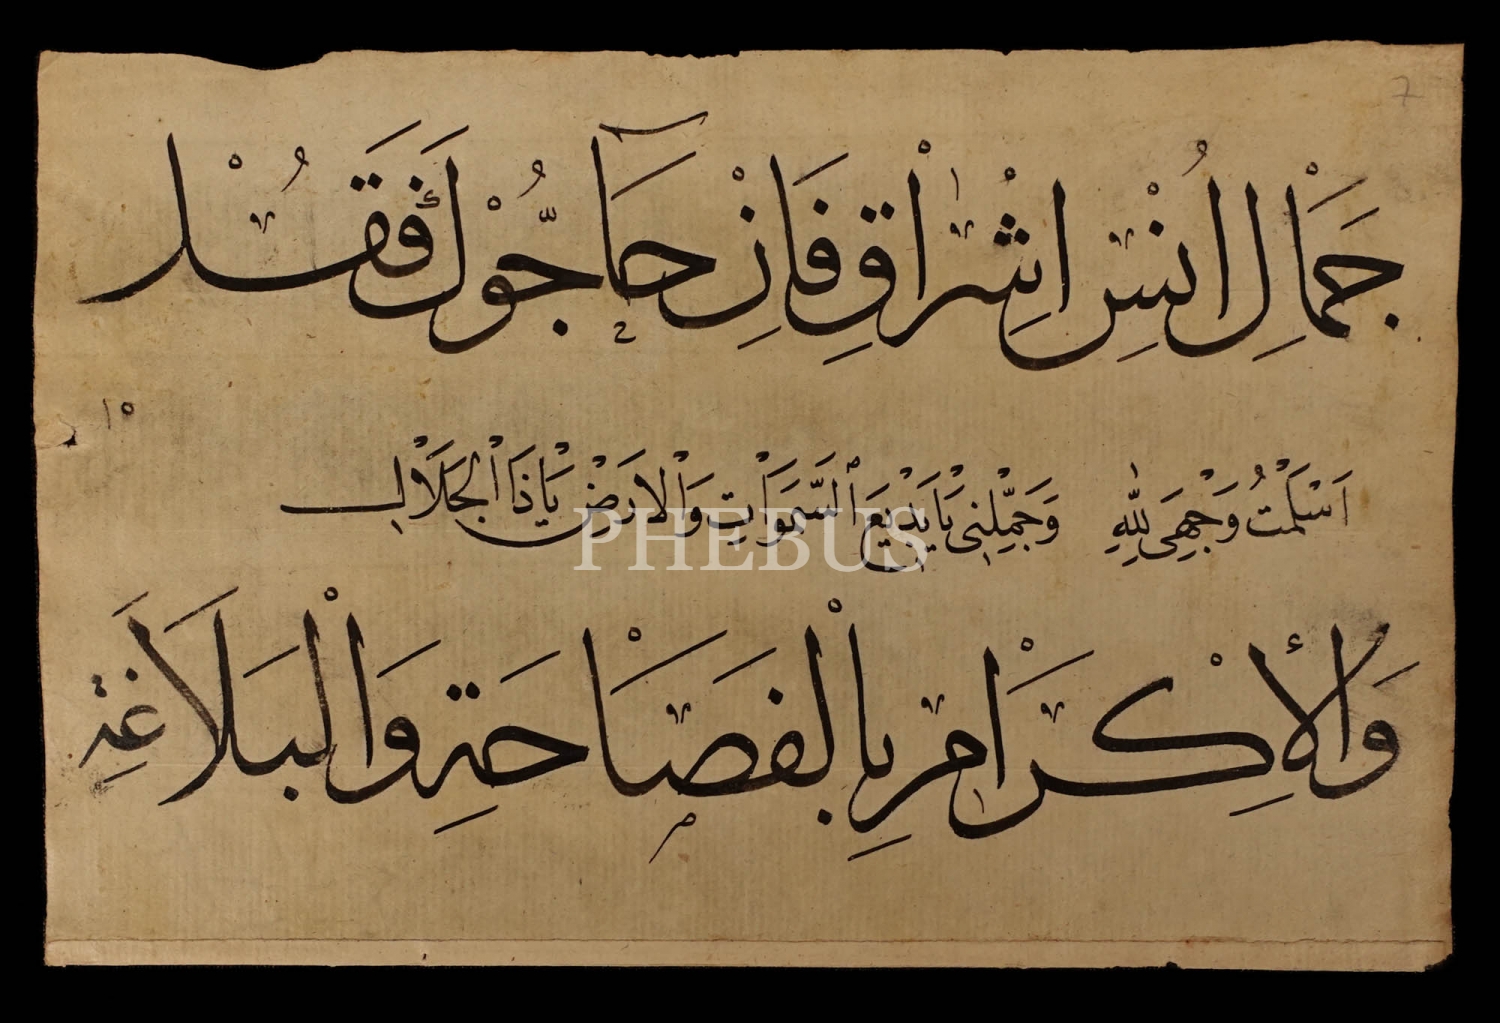 7
جَمَالِ اُنْسِ اِشْرَاقِ فَاِنْ حَآجُّوْكَ فَقُلْ
اَسْلَمْتُ وَجْهِىَ لِلّٰهِ وَجَمِّلْنِى يَا بَدِيْعَ السَّمَوَاتِ وَالْاَرْضِ يَاذَا الْجَلَالِ
PHEBUS
وَالْاِكْرَامِ بِالْفَصَاحَةِ وَالْبَلَاغَةِ